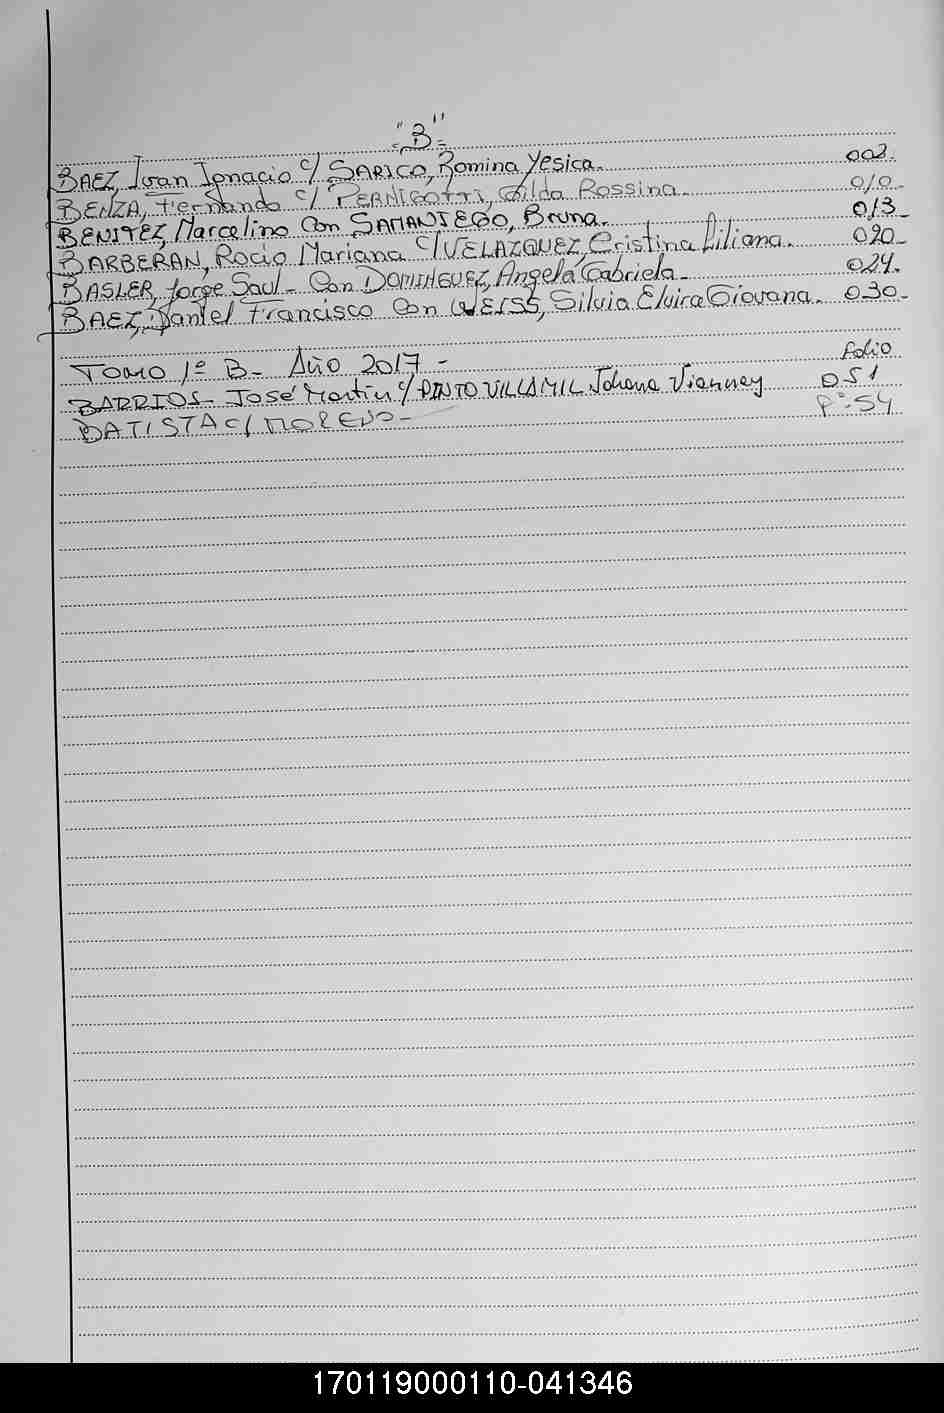 "B"
BAEZ, Ivan Ignacio c/ SARICO, Romina Yesica. 002.
BENZA, Fernando c/ PERNIGOTTI, Gilda Rossina. 010.
BENITEZ, Marcelino Con SAMANIEGO, Bruna. 013
BARBERAN, Rocio Mariana c/ VELAZQUEZ, Cristina Liliana. 020
BASLER, Jorge Saul - Con DOMINGUEZ, Angela Gabriela - 024.
BAEZ, Daniel Francisco Con WEISS, Silvia Elvira Giovana. 030-
TOMO 1º B - Año 2017 - Folio
BARRIOS - José Martín c/ PINTO VILLAMIL Johana Vianney 051
BATISTA c/ MORENO - Fº 54
170119000110-041346